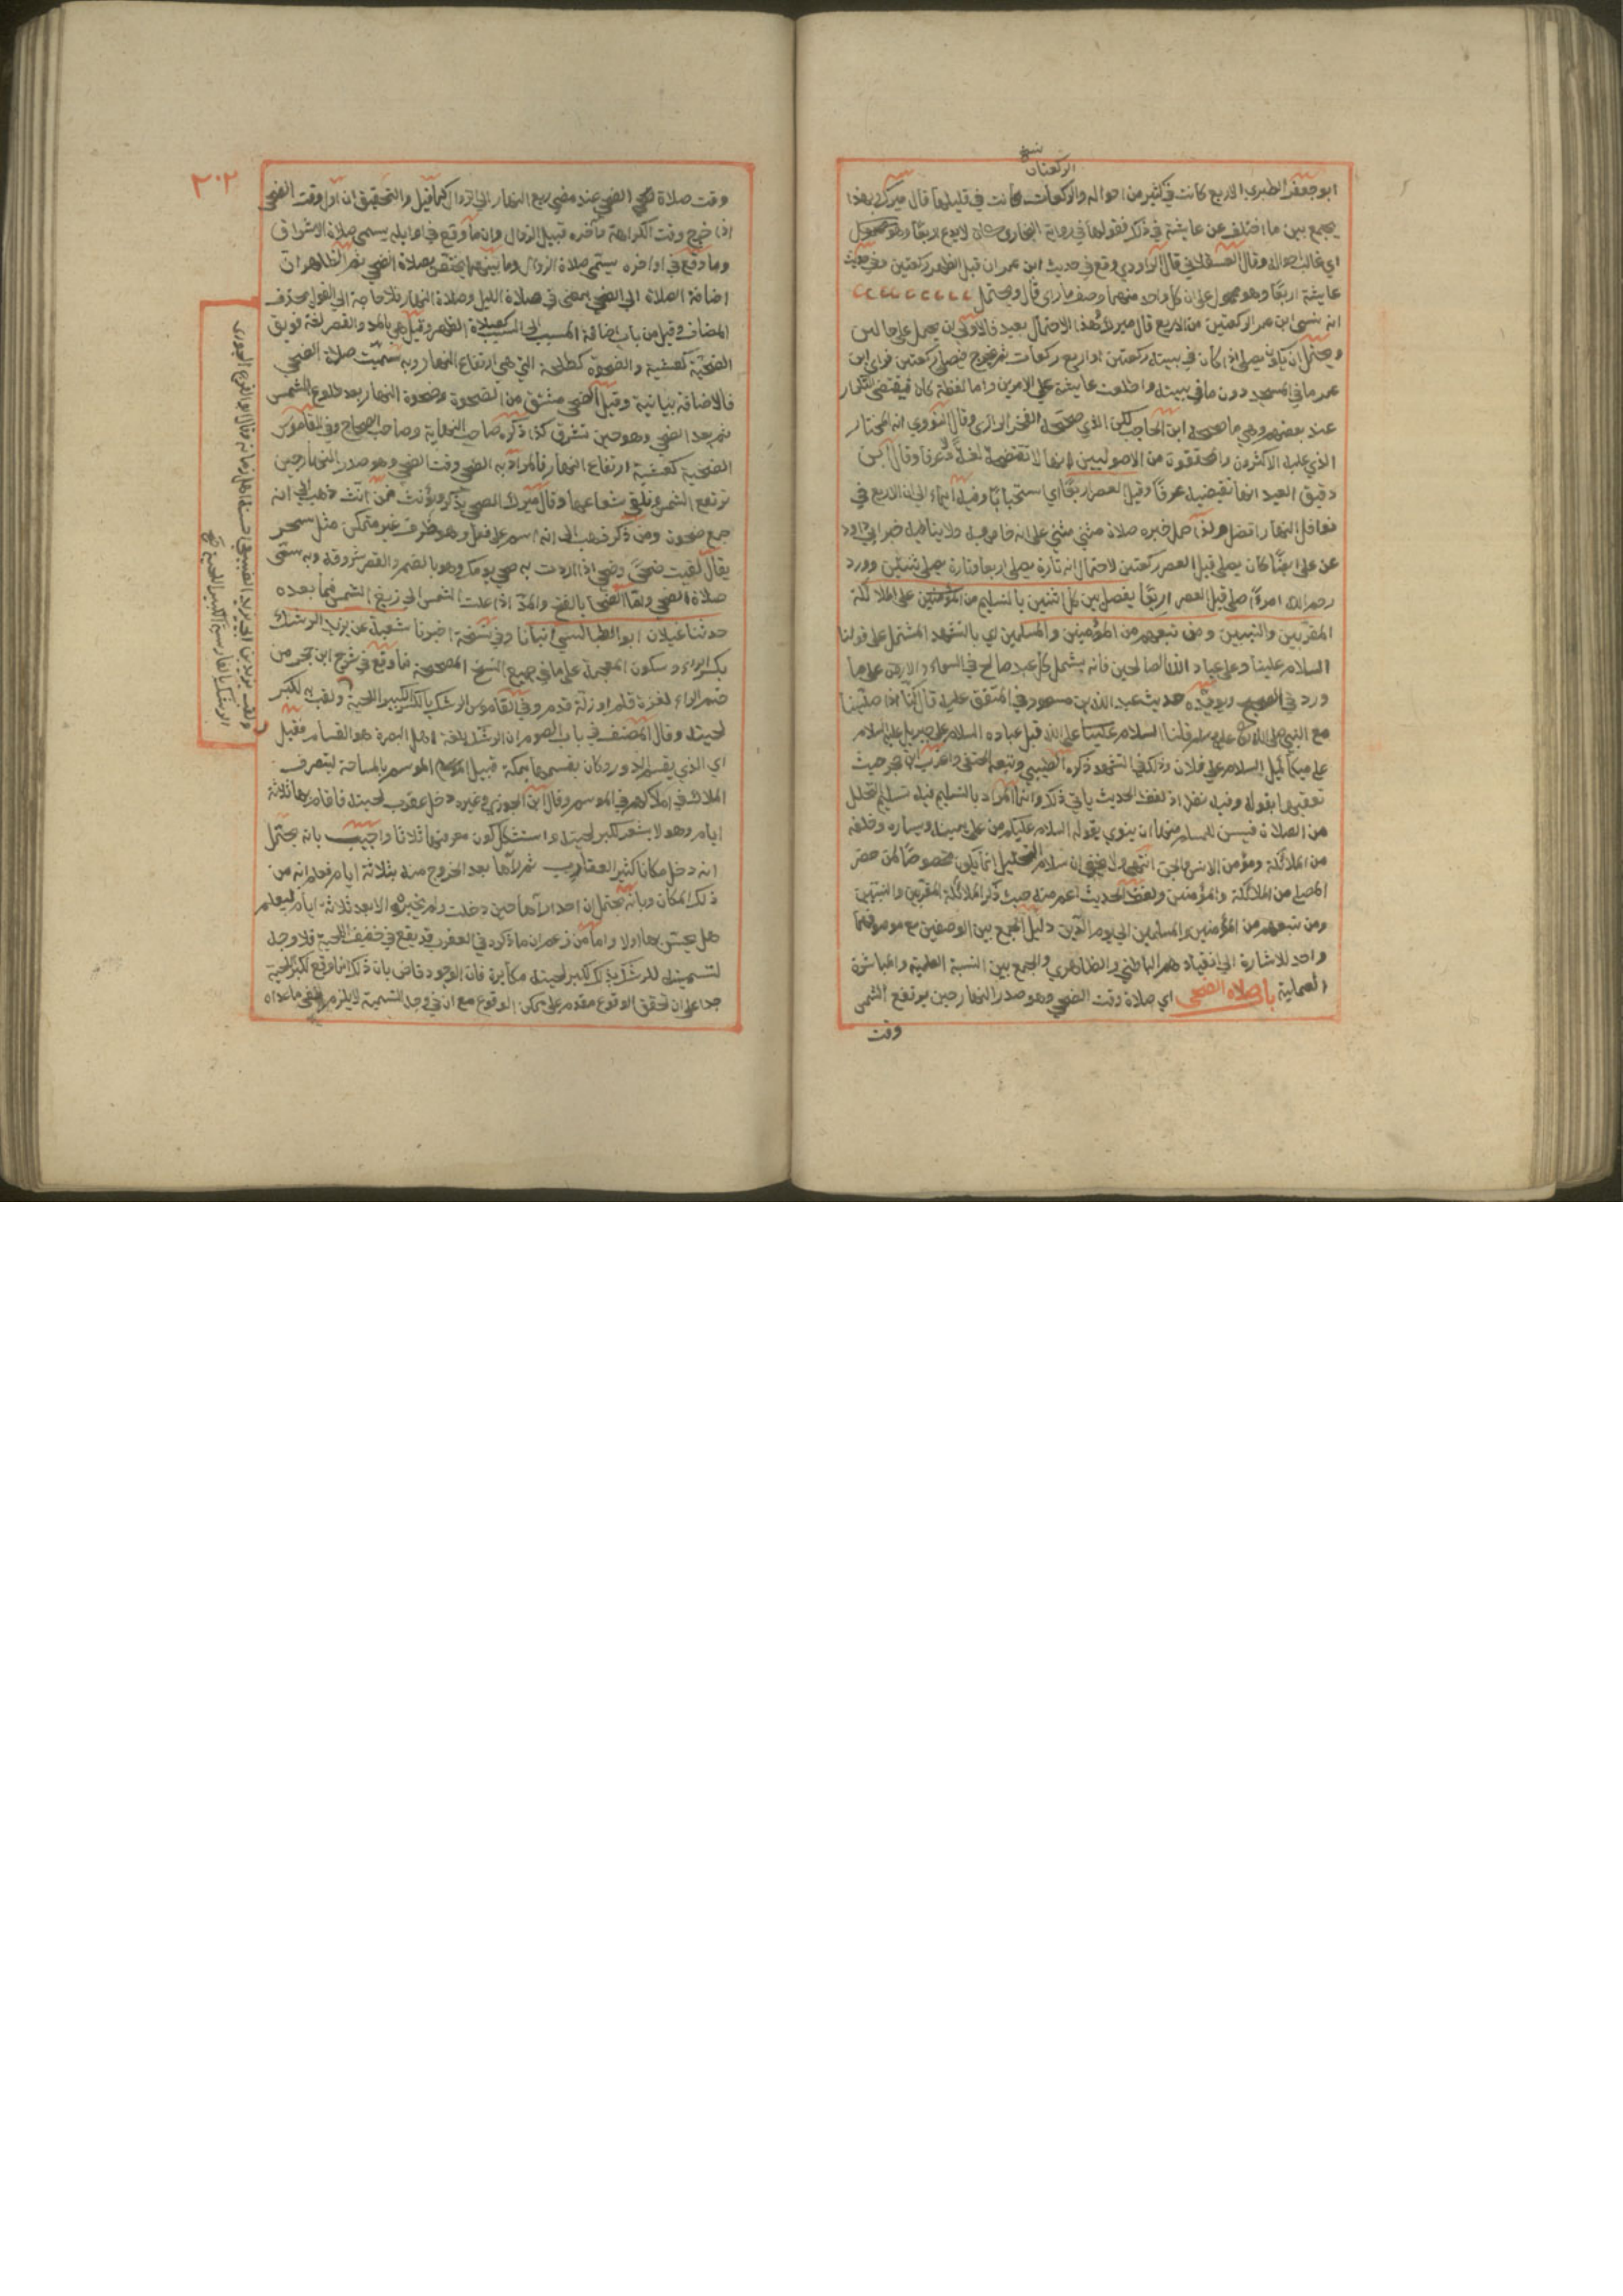 الركعتان نسخ
ابو جعفر الطبري الاربع كانت في كثير من احواله والركعات كانت في قليلها قال ميرك وبهذا
يجمع بين ما اختلف عن عايشة في ذلك فقولها في رواية البخاري كان لا يدع اربعا
اي غالب احواله وقال العسقلاني قال الداودي وقع في حديث ابن عمر ان قبل الظهر ركعتين وفي حديث
عايشة اربعا وهو محمول على ان كل واحد منهما وصف ما راى قال ويحتمل
انه نسي ابن عمر الركعتين من الاربع قال ميرك وهذا الاحتمال بعيد فالاولى ان يحمل على حالين
ويحتمل ان يكون يصلي اذا كان في بيته ركعتين او اربع ركعات ثم يخرج فيصلي ركعتين فراى ابن
عمر ما في المسجد دون ما في بيته واطلعت عايشة على الامرين واما لفظة كان فيقتضي التكرار
عند بعضهم وهي ما صححه ابن الحاجب لكن الذي صححه الفخر الرازي وقال النووي انه المختار
الذي عليه الاكثرون والمحققون من الاصوليين انها لا تقتضيه لغة ولا عرفا وقال ابن
دقيق العيد انها تقتضيه عرفا وقبل العصر اربعا اي استحبابا وفيه ايماء الى ان الاربع في
نوافل النهار افضل ولذا حمل خبره صلاة مثنى مثنى على انه خاص به ولا ينافيه خبر ابي داود
عن علي ايضا كان يصلي قبل العصر ركعتين لاحتمال انه تارة يصلي اربعا وتارة يصلي ثنتين وورد
رحم الله امرءا صلى قبل العصر اربعا يفصل بين كل اثنين بالتسليم من المؤمنين على الملائكة
المقربين والنبيين ومن تبعهم من المؤمنين والمسلمين اي بالتشهد المشتمل على قولنا
السلام علينا وعلى عباد الله الصالحين فانه يشمل كل عبد صالح في السماء والارض على ما
ورد في الصحيح ويؤيده حديث عبد الله ابن مسعود في المتفق عليه قال كنا اذا صلينا
مع النبي صلى الله عليه وسلم قلنا السلام على الله قبل عباده السلام على جبريل عليه السلام
على ميكائيل السلام على فلان وذلك في التشهد ذكره الطيبي وتبعه الحنفي واغرب ابن حجر حيث
تعقبهما بقوله وفيه نظر اذ لفظ الحديث يابى ذلك وانما المراد بالتسليم فيه تسليم التحلل
من الصلاة فيسن للمسلم منها ان ينوي بقوله السلام عليكم من على يمينه ويساره وخلفه
من الملائكة ومؤمن الانس والجن انتهى ولا يخفى ان سلام التحليل انما يكون مخصوصا لمن حضر
المصلي من الملائكة والمؤمنين ولفظ الحديث اعم منه حيث ذكر الملائكة المقربين والنبيين
ومن تبعهم من المؤمنين والمسلمين الى يوم الدين دليل الجمع بين الوصفين مع موصوفهما
واحد للاشارة الى انقيادهم الباطني والظاهري والجمع بين النسبة العلمية والمباشرة
العملية باب صلاة الضحى اي صلاة وقت الضحى وهو صدر النهار حين يرتفع الشمس
وقت
٣٠٢
وقت صلاة الضحى عند مضي ربع النهار الى الزوال كما قيل والتحقيق ان اول وقت الضحى
اذا خرج وقت الكراهة وآخره قبيل الزوال وان ما وقع في اوايله يسمى صلاة الاشراق
وما وقع في اواخره يسمى صلاة الزوال وما بينهما يختص بصلاة الضحى ثم الظاهر ان
اضافة الصلاة الى الضحى بمعنى في صلاة الليل وصلاة النهار فلا حاجة الى القول بحذف
المضاف وقيل من باب اضافة المسبب الى السبب كصلاة الظهر وقيل هي بالمد والقصر لغة فويق
الضحية كعشية والضحوة كطلحة التي هي ارتفاع النهار وبه سميت صلاة الضحى
فالاضافة بيانية وقيل الضحى مشتق من الضحوة وضحوة النهار بعد طلوع الشمس
ثم بعد الضحى وهو حين تشرق كذا ذكره صاحب النهاية وصاحب الصحاح وفي القاموس
الضحية كعشية ارتفاع النهار فالمراد به الضحى وقت الضحى وهو صدر النهار حين
ترتفع الشمس وتلقي شعاعها وقال ميرك الضحى يذكر ويؤنث فمن انث ذهب الى انه
جمع ضحوة ومن ذكر ذهب الى انه اسم على فعل وهو ظرف غير متمكن مثل سحر
يقال لقيت ضحى وضحى اذا اردت به ضحى يومك وهو بالضم والقصر شروقه وبه سمي
صلاة الضحى واما الضحاء بالفتح والمد اذا علت الشمس الى زيغ الشمس فما بعده
حدثنا غيلان ابو الطيالسي انبانا وفي نسخة اخبرنا شعبة عن يزيد الرشك
بكسر الراء وسكون المعجمة على ما في جميع النسخ المصححة فما وقع في شرح ابن حجر من
ضم الراء لغزة قلم او زلة قدم وفي القاموس الرشك بالكسر الكبير اللحية ولقب به لكبر
لحيته وقال المصنف في باب الصوم ان الرشك بلغة اهل البصرة هو القسام فقيل
اي الذي يقسم الدور وكان يقسمها بمكة قبيل الموسم بالمساحة ليتصرف
الملاك في املاكهم في الموسم وقال ابن الجوزي وغيره دخل عقرب لحيته فاقام بها ثلاثة
ايام وهو لا يشعر لكبر لحيته واستشكل كون معرفتها ثلاثا واجيب بانه يحتمل
انه دخل مكانا كثير العقارب ثم راها بعد الخروج منه بثلاثة ايام فعلم انه من
ذلك المكان وبانه يحتمل ان احدا راها حين دخلت ولم يخبره الا بعد ثلاثة ايام ليعلم
هل يحس بها اولا واما من زعم ان ما ذكره في العقرب قد يقع في خفيف اللحية فلا وجه
لتسميته للرشك بذلك لكبر لحيته مكابرة فان الوجود قاض بان ذلك انما وقع لكبير لحية
جدا على ان تحقق الوقوع مقدم على ممكن الوقوع مع ان في وجه التسمية لا يلزم نفي ما عداه
ولقب يزيد بن ابي يزيد الضبعي احسب اهل زمانه وقال ابو الفرج الجوزي
الرشك بالفارسية الكبير اللحية صح